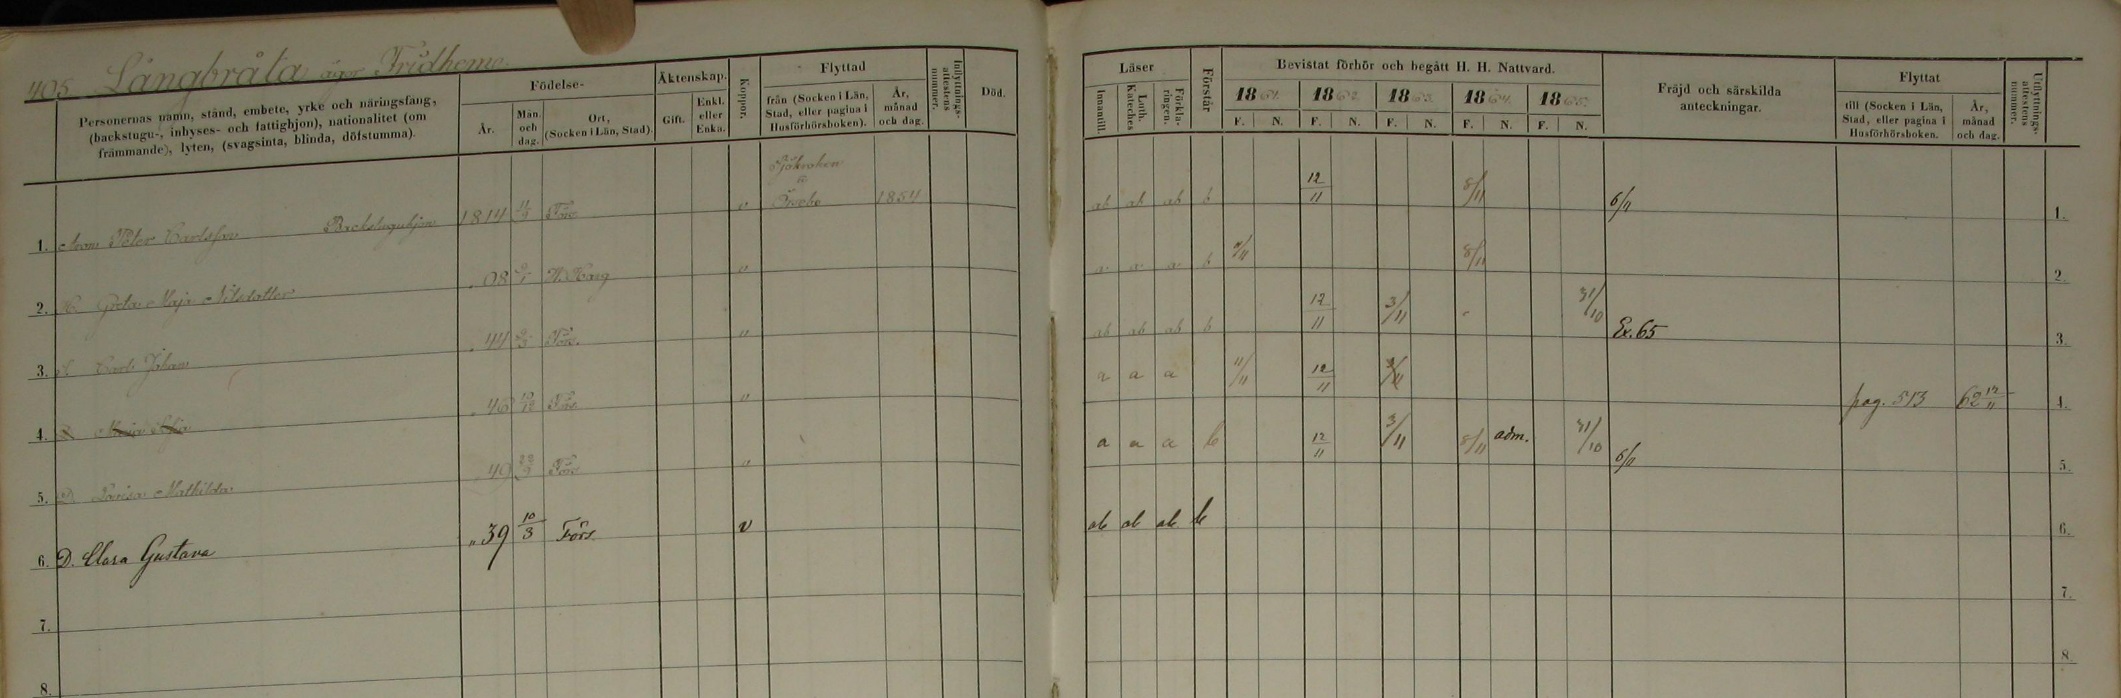 405. Långbråta ägor Fridhem
Personernas namn, stånd, embete, yrke och näringsfång, (backstugu-, inhyses- och fattighjon), nationalitet (om främmande), lyten, (svagsinta, blinda, döfstumma).
Födelse-
År.
Mån. och dag.
Ort, (Socken i Län, Stad).
Äktenskap.
Gift.
Enkl. eller Enka.
Koppor.
Flyttad
från (Socken i Län, Stad, eller pagina i Husförhörsboken).
År, månad och dag.
Inflyttnings-attestens nummer.
Död.
Läser
Innantill.
Luth. Kateches
Förklaringen.
Förstår
Bevistat förhör och begått H. H. Nattvard.
1861. 1862. 1863. 1864. 1865.
F. N. F. N. F. N. F. N. F. N.
Fräjd och särskilda anteckningar.
Flyttat
till (Socken i Län, Stad, eller pagina i Husförhörsboken.
År, månad och dag.
Utflyttnings-attestens nummer.
1. Peter Carlsson Backstuguhjon 1814 Förs v 1854 ab ab ab b 12/11 8/11 6/11 1.
2. H. Greta Maja Nilsdotter " 08 " a a a b 8/11 2.
3. S. Carl Johan " 44 Förs. " ab ab ab b 12/11 3/11 31/10 Ex. 65 3.
4. D. Maria Sofia " 46 Förs " a a a 11/11 12/11 3/11 pag. 513 62 12/11 4.
5. D. Lovisa Mathilda " 49 Förs " a a a b 12/11 3/11 8/11 adm. 31/10 6/11 5.
6. D. Clara Gustava " 39 10/3 Förs v ab ab ab b 6.
7. 7.
8. 8.